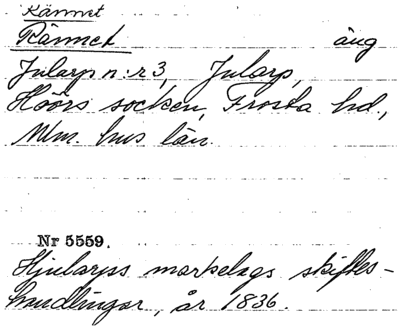 Kännet
Rännet äng
Julärp n:r 3, Julärp,
Höörs socken, Frosta hd,
Mlm. hus län.
Nr 5559.
Hjularps markelags skiftes-
handlingar, år 1836.